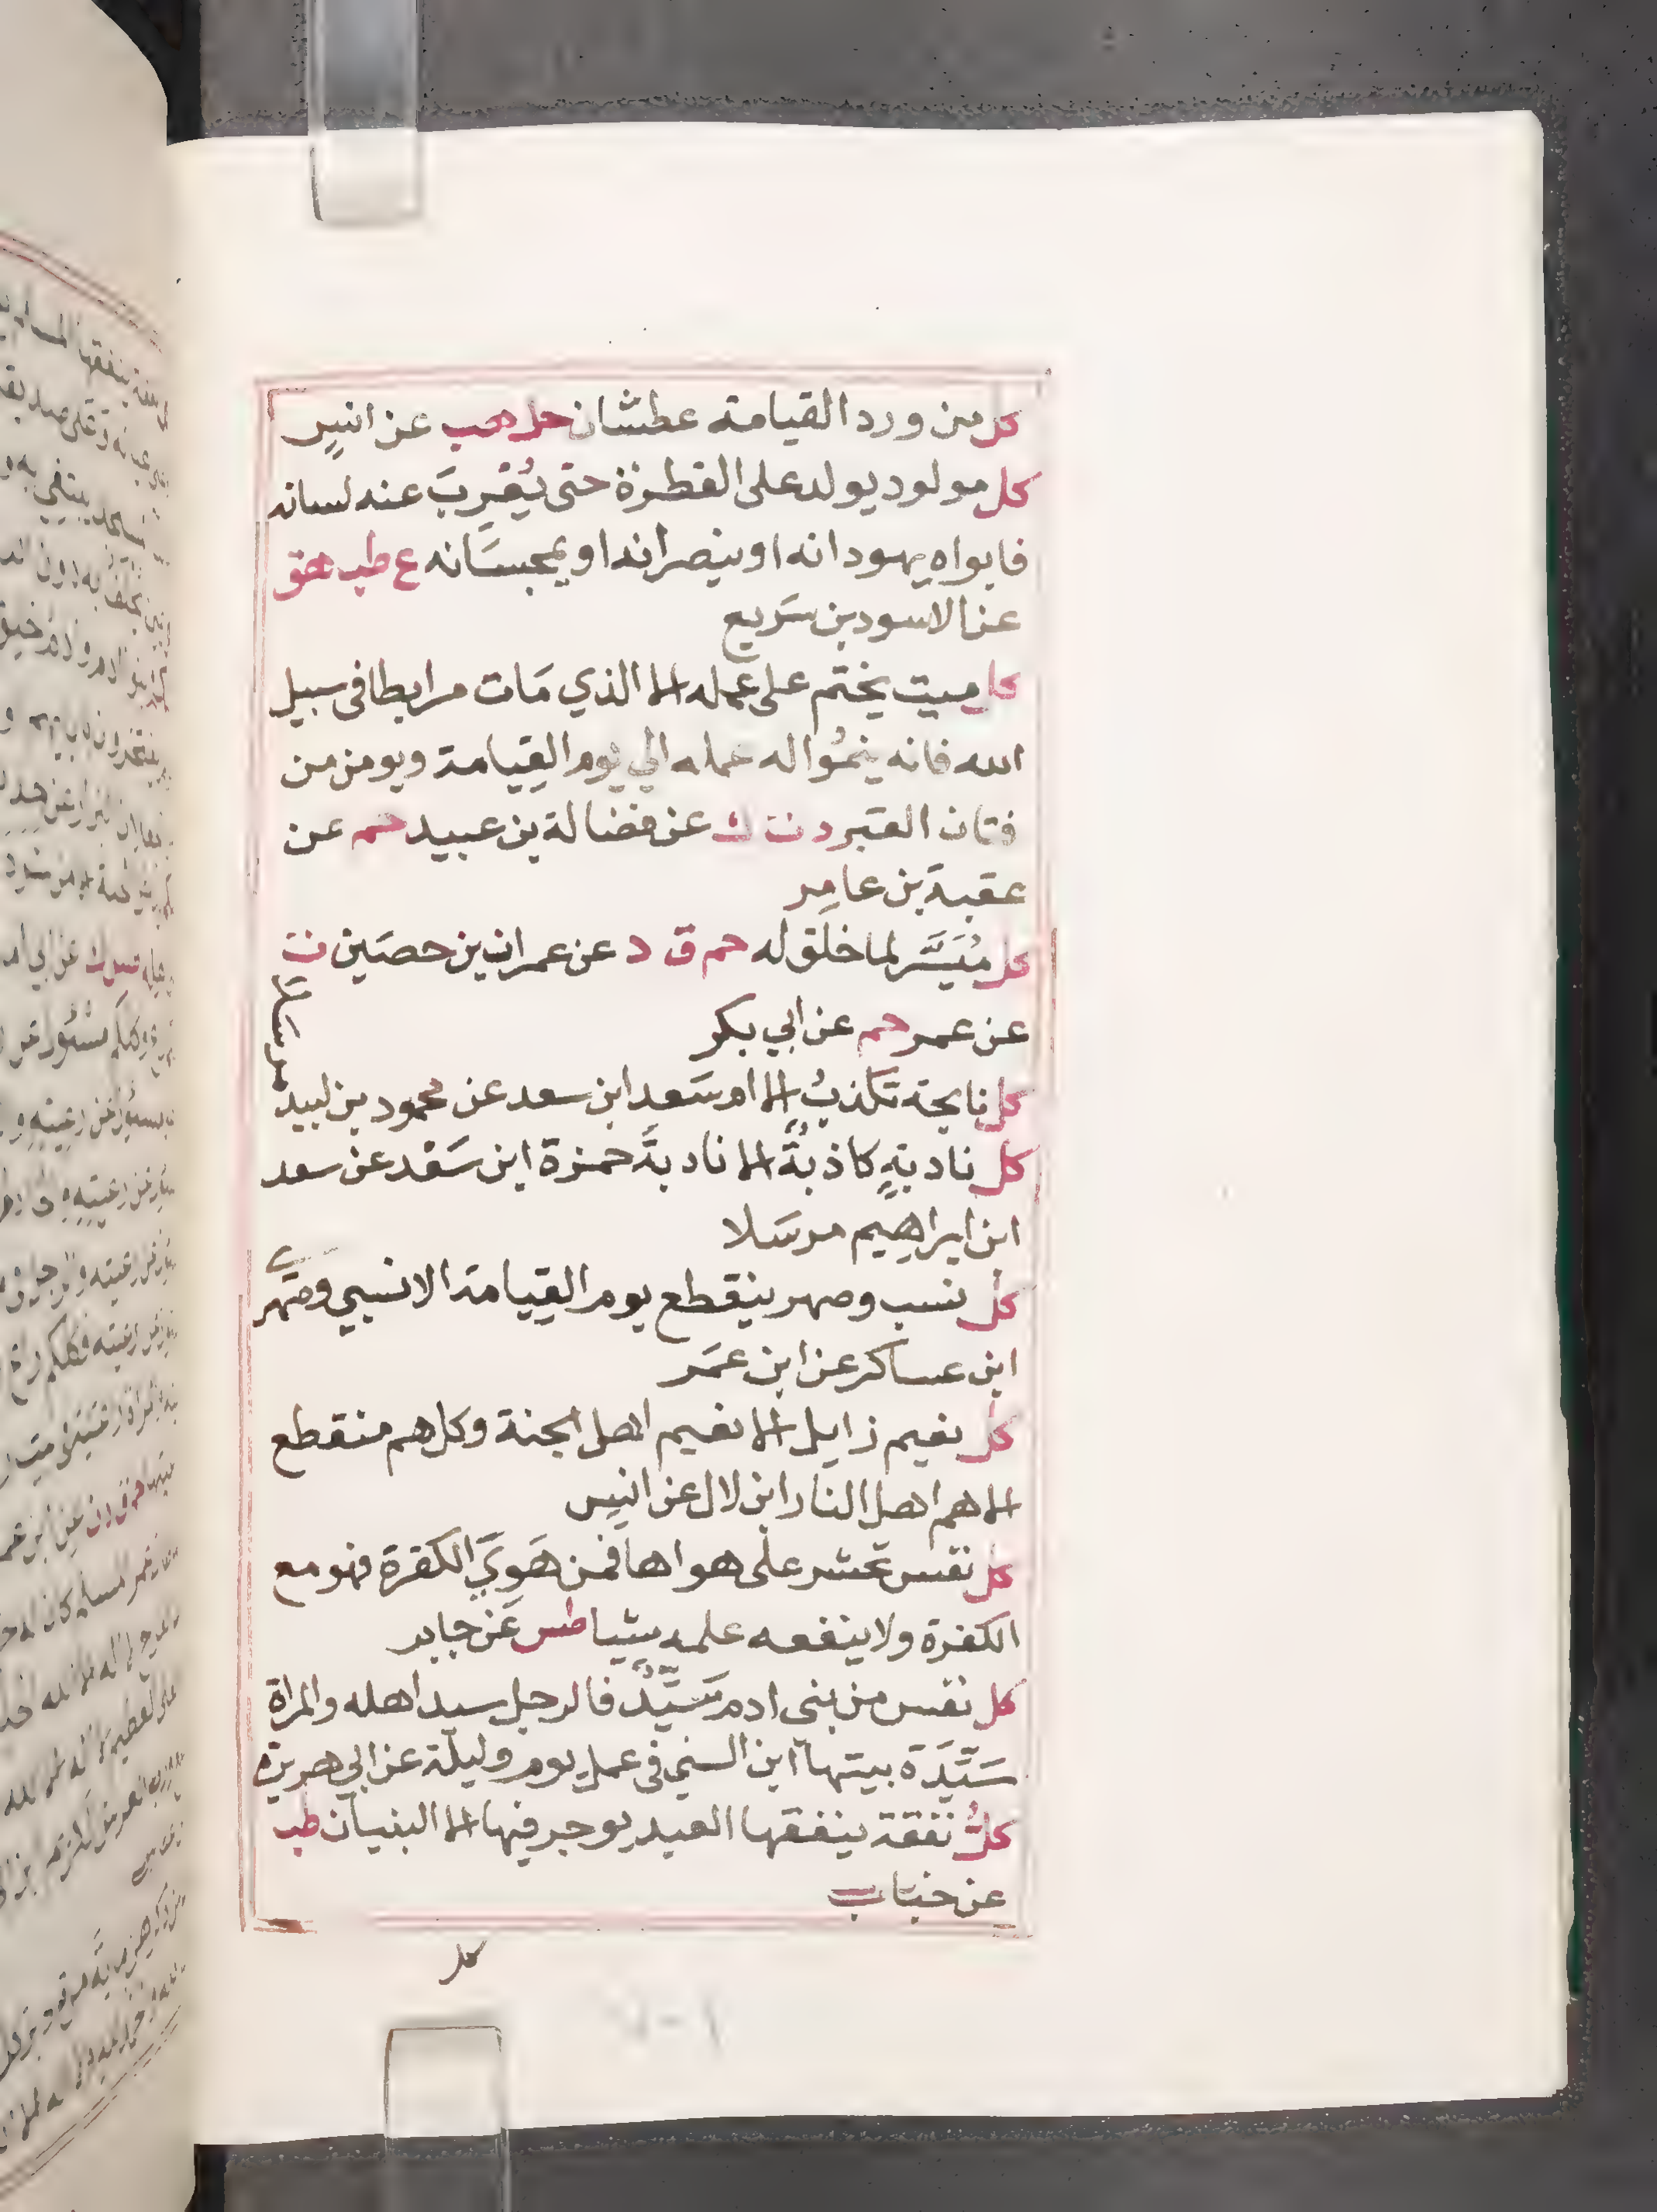 كل من ورد القيامة عطشان حل هب عن انسٍ
كل مولود يولد على الفطرة حتى يُعْرِبَ عنه لسانه
فابواه يهودانه او ينصرانه او يمجسَانه ع طب هق
عن الاسود بن سَريع
كل ميت يختم على عمله الا الذي مَات مرابطا في سبيل
الله فانه ينمُوا له عمله الي يوم القِيامة ويومن من
فتان القبر د ت ك عن فضالة بن عبيد حم عن
عقبة بن عامِر
كل مُيَسَّر لما خلق له حم ق د عن عمران بن حصَين ت
عن عمر حم عن ابي بكر
كل نايحة تكذبُ الا ام سَعد ابن سعد عن محمود بن لبيد
مرسَلا
كل نادبةٍ كاذبةٌ الا نادبةَ حمزة ابن سَعْد عن سعد
ابن ابراهِيم مرسَلا
كل نسب وصهر ينقطع يوم القِيامة الا نسبي وصهري
ابن عساكر عن ابن عمَر
كل نعيم زايل الا نعيم اهل الجنة وكل هم منقطع
الا هم اهل النار ابن لال عن انسِ
كل نفس تحشر على هواها فمن هَوِيَ الكفرة فهو مع
الكفرة ولا ينفعه علمه شيا طس عَن جابر
كل نفس من بني ادم سَيّدٌ فالرجل سيد اهله والمراة
سَيَّدَة بيتها ابن السني في عمل يوم وليلة عن ابي هريرة
كلُّ نفقة ينفقها العبد يوجر فيها الا البنيان طب
عن خبّاب
كل